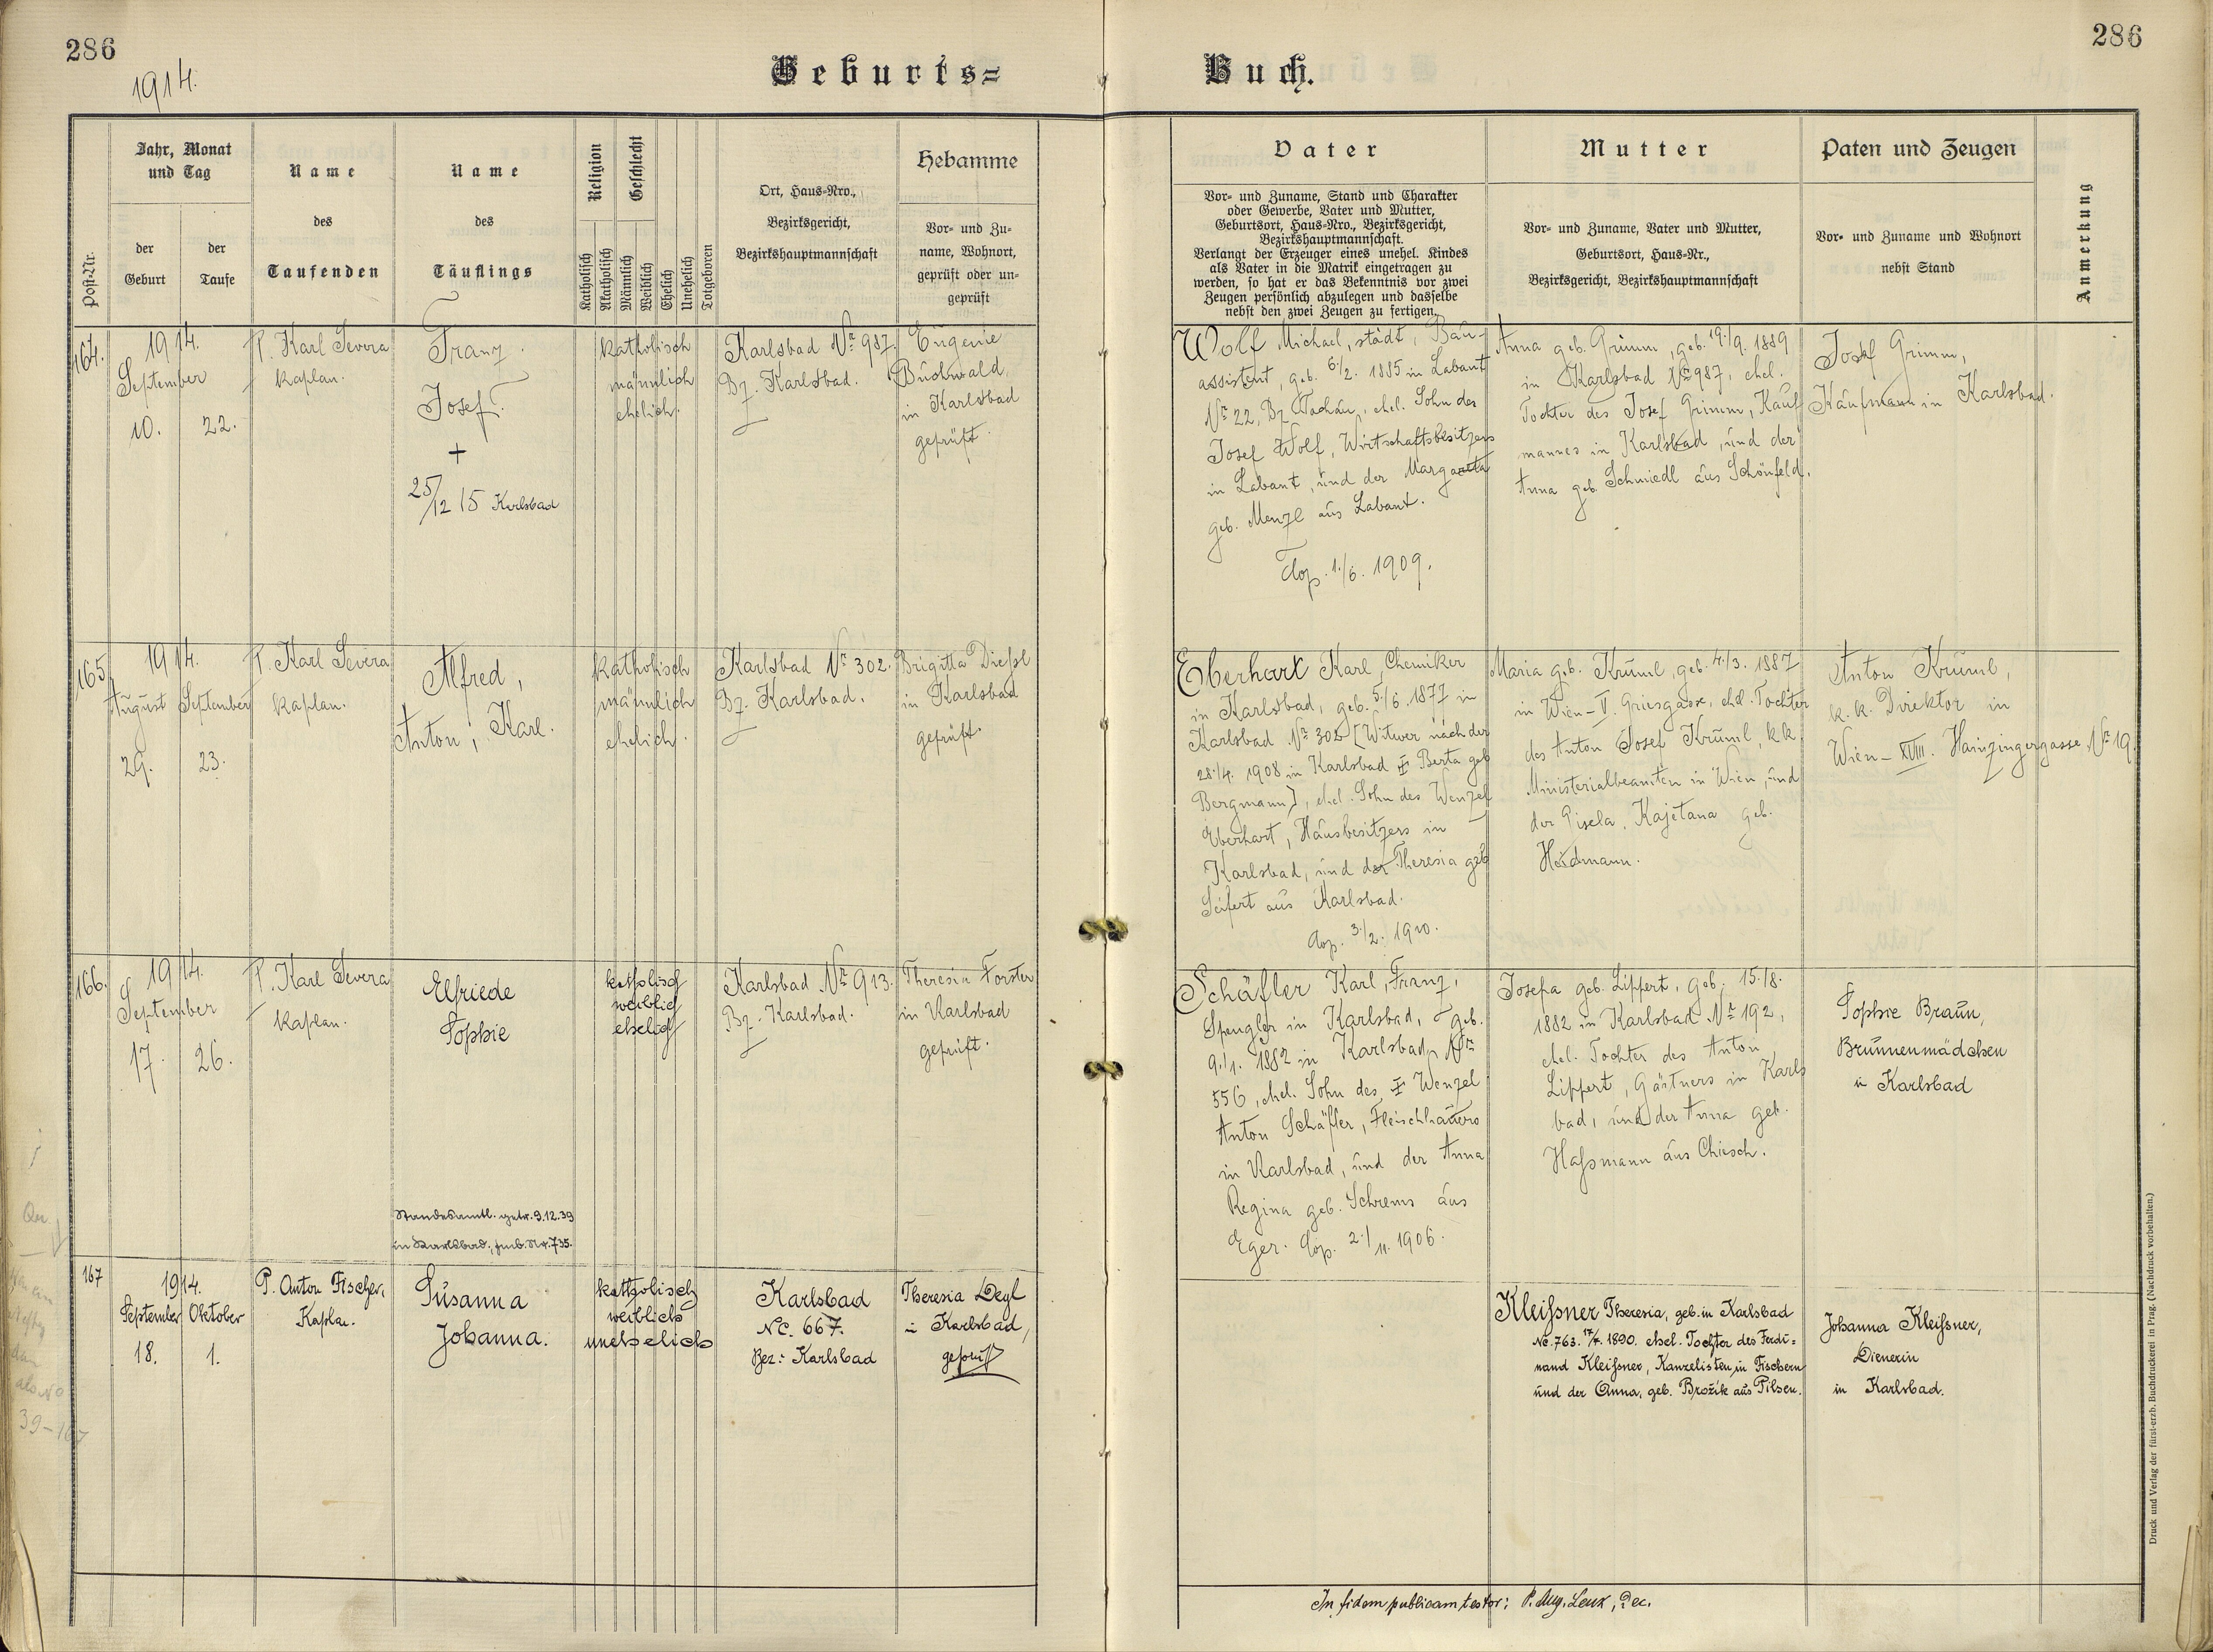 286
286
1914.
Geburts=
Buch.
Post-Nr.
Jahr, Monat
und Tag
der
Geburt
der
Taufe
Name
des
Taufenden
Name
des
Täuflings
Religion
Geschlecht
Katholisch
Akatholisch
Männlich
Weiblich
Ehelich
Unehelich
Totgeboren
Ort, Haus-Nro.,
Bezirksgericht,
Bezirkshauptmannschaft
Hebamme
Vor- und Zu-
name, Wohnort,
geprüft oder un-
geprüft
Vater
Vor- und Zuname, Stand und Charakter
oder Gewerbe, Vater und Mutter,
Geburtsort, Haus-Nro., Bezirksgericht,
Bezirkshauptmannschaft.
Verlangt der Erzeuger eines unehel. Kindes
als Vater in die Matrik eingetragen zu
werden, so hat er das Bekenntnis vor zwei
Zeugen persönlich abzulegen und dasselbe
nebst den zwei Zeugen zu fertigen.
Mutter
Vor- und Zuname, Vater und Mutter,
Geburtsort, Haus-Nr.,
Bezirksgericht, Bezirkshauptmannschaft
Paten und Zeugen
Vor- und Zuname und Wohnort
nebst Stand
Anmerkung
164.
1914.
September
10.
22.
P. Karl Severa
Kaplan.
Franz
Josef.
+
25/12 15 Karlsbad
katholisch
männlich
ehelich.
Karlsbad Nr. 987.
Bz. Karlsbad.
Eugenie
Buchwald
in Karlsbad
geprüft.
Wolf Michael, städt. Bau-
assistent, geb. 6./2. 1885 in Labant
Nr. 22, Bz. Tachau, ehel. Sohn des
Josef Wolf, Wirtschaftsbesitzers
in Labant, und der Margareta
geb. Menzl aus Labant.
Cop. 1./6. 1909.
Anna geb. Grimm, geb. 19./9. 1889
in Karlsbad Nr. 987, ehel.
Tochter des Josef Grimm, Kauf
mannes in Karlsbad, und der
Anna geb. Schmiedl aus Schönfeld.
Josef Grimm,
Kaufmann in Karlsbad.
165.
1914.
August September
29.
23.
P. Karl Severa
Kaplan.
Alfred,
Anton, Karl.
katholisch
männlich
ehelich.
Karlsbad Nr. 302.
Bz. Karlsbad.
Brigitta Dießl
in Karlsbad
geprüft.
Eberhart Karl, Chemiker
in Karlsbad, geb. 5./6. 1877 in
Karlsbad Nr. 302 [Witwer nach der
28./4. 1908 in Karlsbad ┼ Berta geb
Bergmann], ehel. Sohn des Wenzel
Eberhart, Hausbesitzers in
Karlsbad, und der Theresia geb
Seifert aus Karlsbad.
Cop. 3./2. 1910.
Maria geb. Kruml, geb. 4./3. 1887
in Wien-V. Griesgasse, ehel. Tochter
des Anton Josef Kruml, k.k.
Ministerialbeamten in Wien, und
der Gisela, Kajetana geb.
Heidmann.
Anton Kruml,
k.k. Direktor in
Wien-XVIII. Haizingergasse Nr. 19.
166.
1914.
September
17.
26.
P. Karl Severa
Kaplan.
Elfriede
Sophie
Standesamtl. getr. 9.12.39
in Karlsbad, jmb. Nr. 735.
katholisch
weiblich
ehelich
Karlsbad Nr. 913.
Bz. Karlsbad.
Theresia Forster
in Karlsbad
geprüft.
Schäfler Karl, Franz,
Spengler in Karlsbad, geb.
9./1. 1882 in Karlsbad Nr.
556, ehel. Sohn des ┼ Wenzel
Anton Schäfler, Fleischhauers
in Karlsbad, und der Anna
Regina geb. Schrems aus
Eger. Cop. 2./11. 1906.
Josefa geb. Lippert, geb. 15./8.
1882 in Karlsbad Nr. 192,
ehel. Tochter des Anton
Lippert, Gärtners in Karls
bad, und der Anna geb.
Haßmann aus Chiesch.
Sophie Braun,
Brunnenmädchen
in Karlsbad
167
1914.
September Oktober
18.
1.
P. Anton Fischer,
Kaplan.
Susanna
Johanna.
katholisch
weiblich
unehelich
Karlsbad
NC. 667.
Bez.: Karlsbad
Theresia Degl
in Karlsbad,
geprüft
Kleißner Theresia, geb. in Karlsbad
No. 763. 17/4. 1890. ehel. Tochter des Ferdi-
nand Kleißner, Kanzelisten in Fischern
und der Anna, geb. Brožik aus Pilsen.
Johanna Kleißner,
Dienerin
in Karlsbad.
39-167
In fidem publicam testor: P. Aug. Lenk, Dec.
Druck und Verlag der fürst-erzb. Buchdruckerei in Prag. (Nachdruck vorbehalten.)